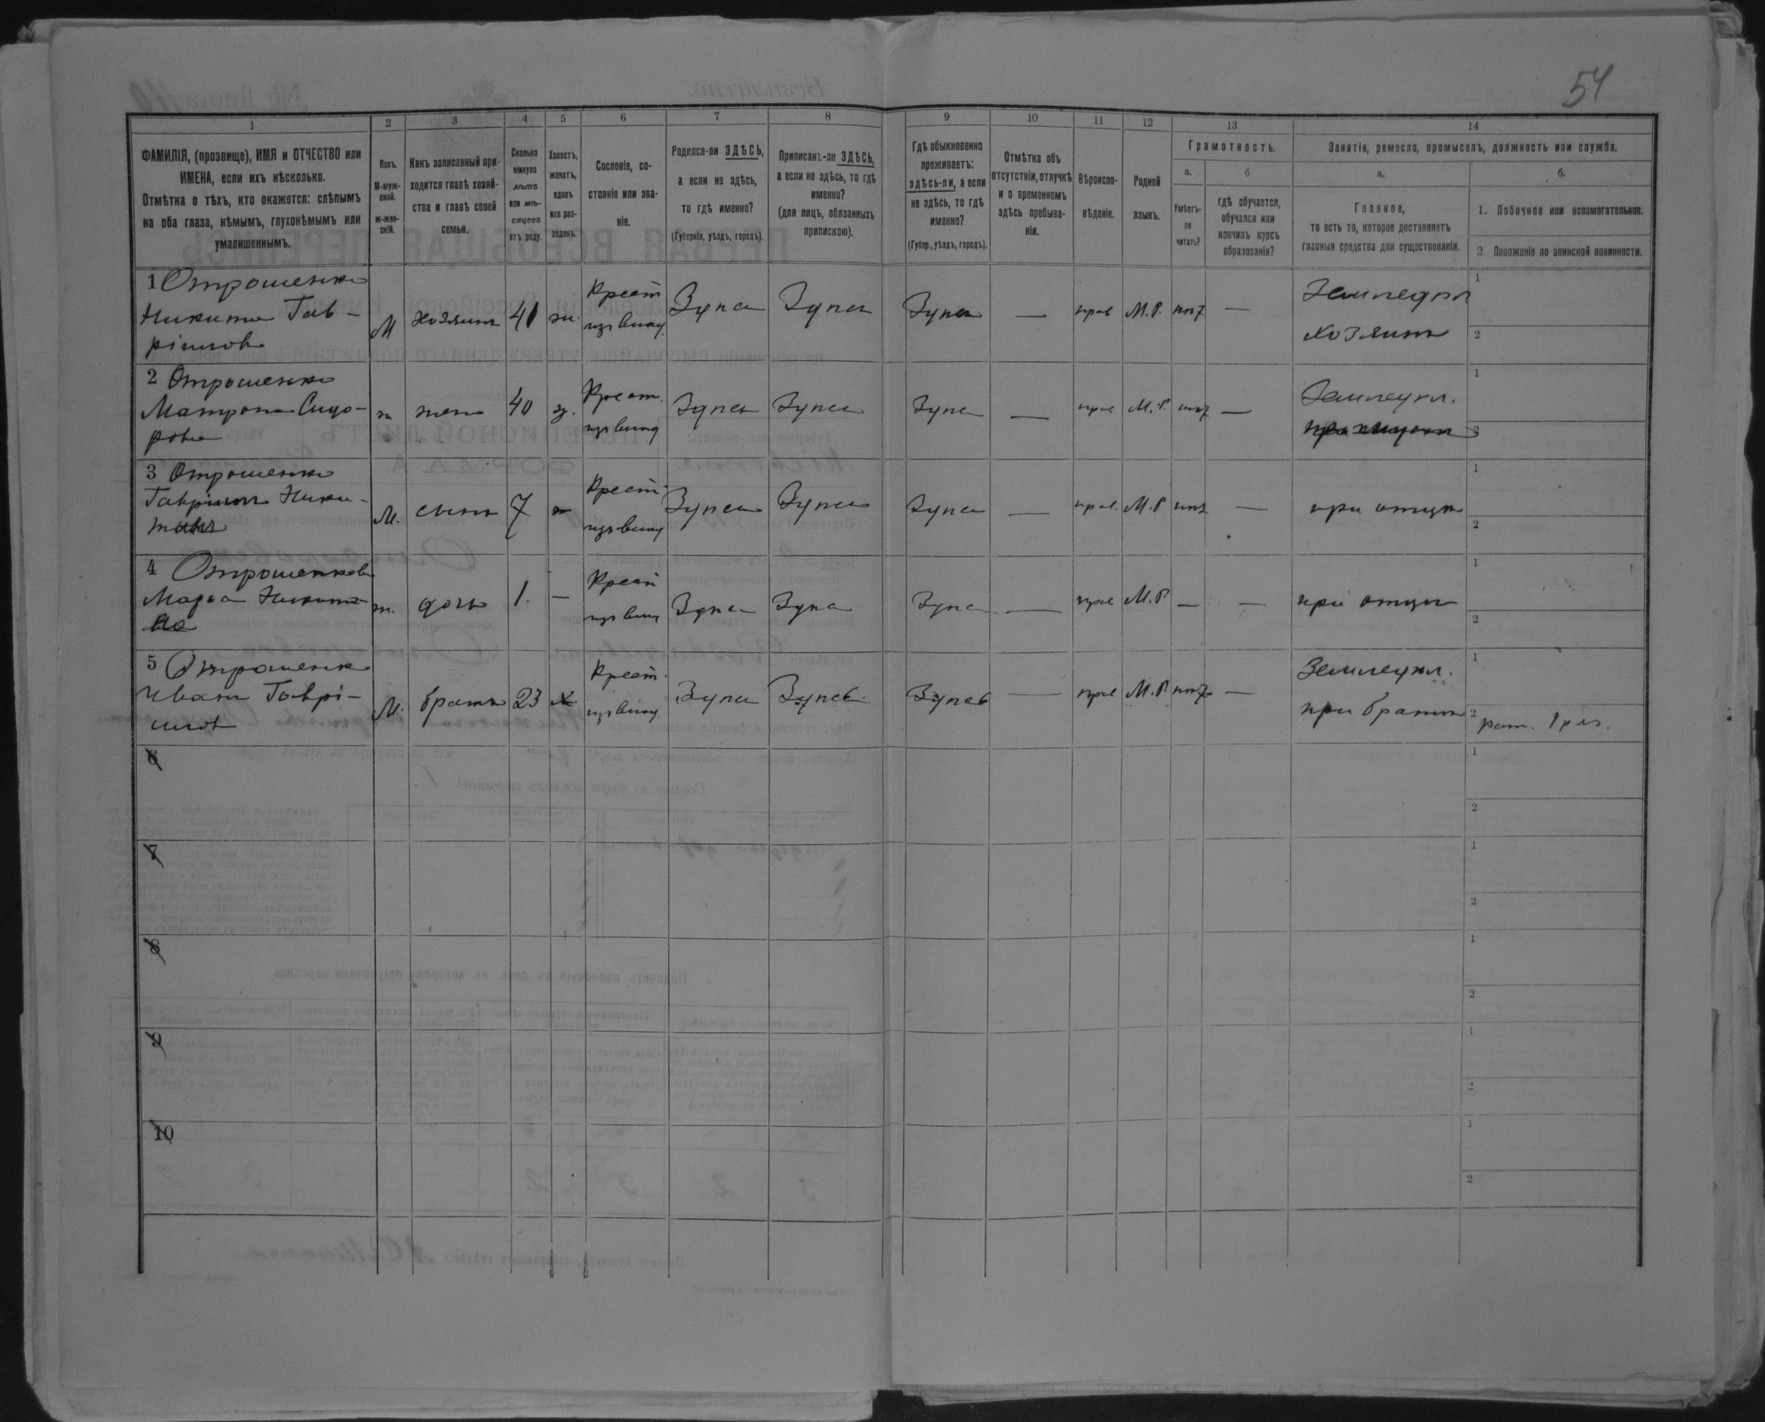 54
1 2 3 4 5 6 7 8 9 10 11 12 13 14
ФАМИЛІЯ, (прозвище), ИМЯ и ОТЧЕСТВО или ИМЕНА, если ихъ нѣсколько.
Отмѣтка о тѣхъ, кто окажется: слѣпымъ на оба глаза, нѣмымъ, глухонѣмымъ или умалишеннымъ.
Полъ. М-муж-ской. ж-жен-скій.
Какъ записанный при-ходится главѣ хозяй-ства и главѣ своей семьи.
Сколько минуло лѣтъ или мѣ-сяцевъ отъ роду.
Холостъ, женатъ, вдовъ или раз-веденъ.
Сословіе, со-стояніе или зва-ніе.
Родился-ли ЗДѢСЬ, а если не здѣсь, то гдѣ именно?
(Губернія, уѣздъ, городъ).
Приписанъ-ли ЗДѢСЬ, а если не здѣсь, то гдѣ именно?
(для лицъ, обязанныхъ припискою).
Гдѣ обыкновенно проживаетъ: здѣсь-ли, а если не здѣсь, то гдѣ именно?
(Губер., уѣздъ, городъ).
Отмѣтка объ отсутствіи, отлучкѣ и о временномъ здѣсь пребыва-ніи.
Вѣроиспо-вѣданіе.
Родной языкъ.
Грамотность.
а. Умѣетъ-ли читать?
б гдѣ обучается, обучался или кончилъ курсъ образованія?
Занятіе, ремесло, промыселъ, должность или служба.
а. Главное,
то есть то, которое доставляетъ главныя средства для существованія.
б.
1. Побочное или вспомогательное.
2 Положеніе по воинской повинности.
1 Отрошенко
Никита Гав-
ріиловъ
М хозяинъ 41 ж. Крест. Здѣсь Здѣсь Здѣсь — прав М.Р. нѣт —
хозяинъ
1
2
2 Отрошенко
Матрона Сидо-
рова
ж жена 40 з. Крест. Здѣсь Здѣсь Здѣсь — прав М.Р. нѣт —
Земледѣл.
1
2
3 Отрошенко
Гавріилъ Ники-
тинъ
М. сынъ 7 Крест. Здѣсь Здѣсь Здѣсь — прав. М.Р нѣт —
при отцѣ
1
2
4 Отрошенкова
Марія Никити-
на
ж. дочь 1. — Крест Здѣсь Здѣсь Здѣсь — прав М.Р — —
при отцѣ
1
2
5 Отрошенко
Иванъ Гаврі-
иловъ
М. братъ 23 х Крест. Здѣсь Здѣсь Здѣсь — прав М.Р нѣт —
Земледѣл.
при братѣ
1
2 рат. 1 раз.
6
1
2
7
1
2
8
1
2
9
1
2
10
1
2